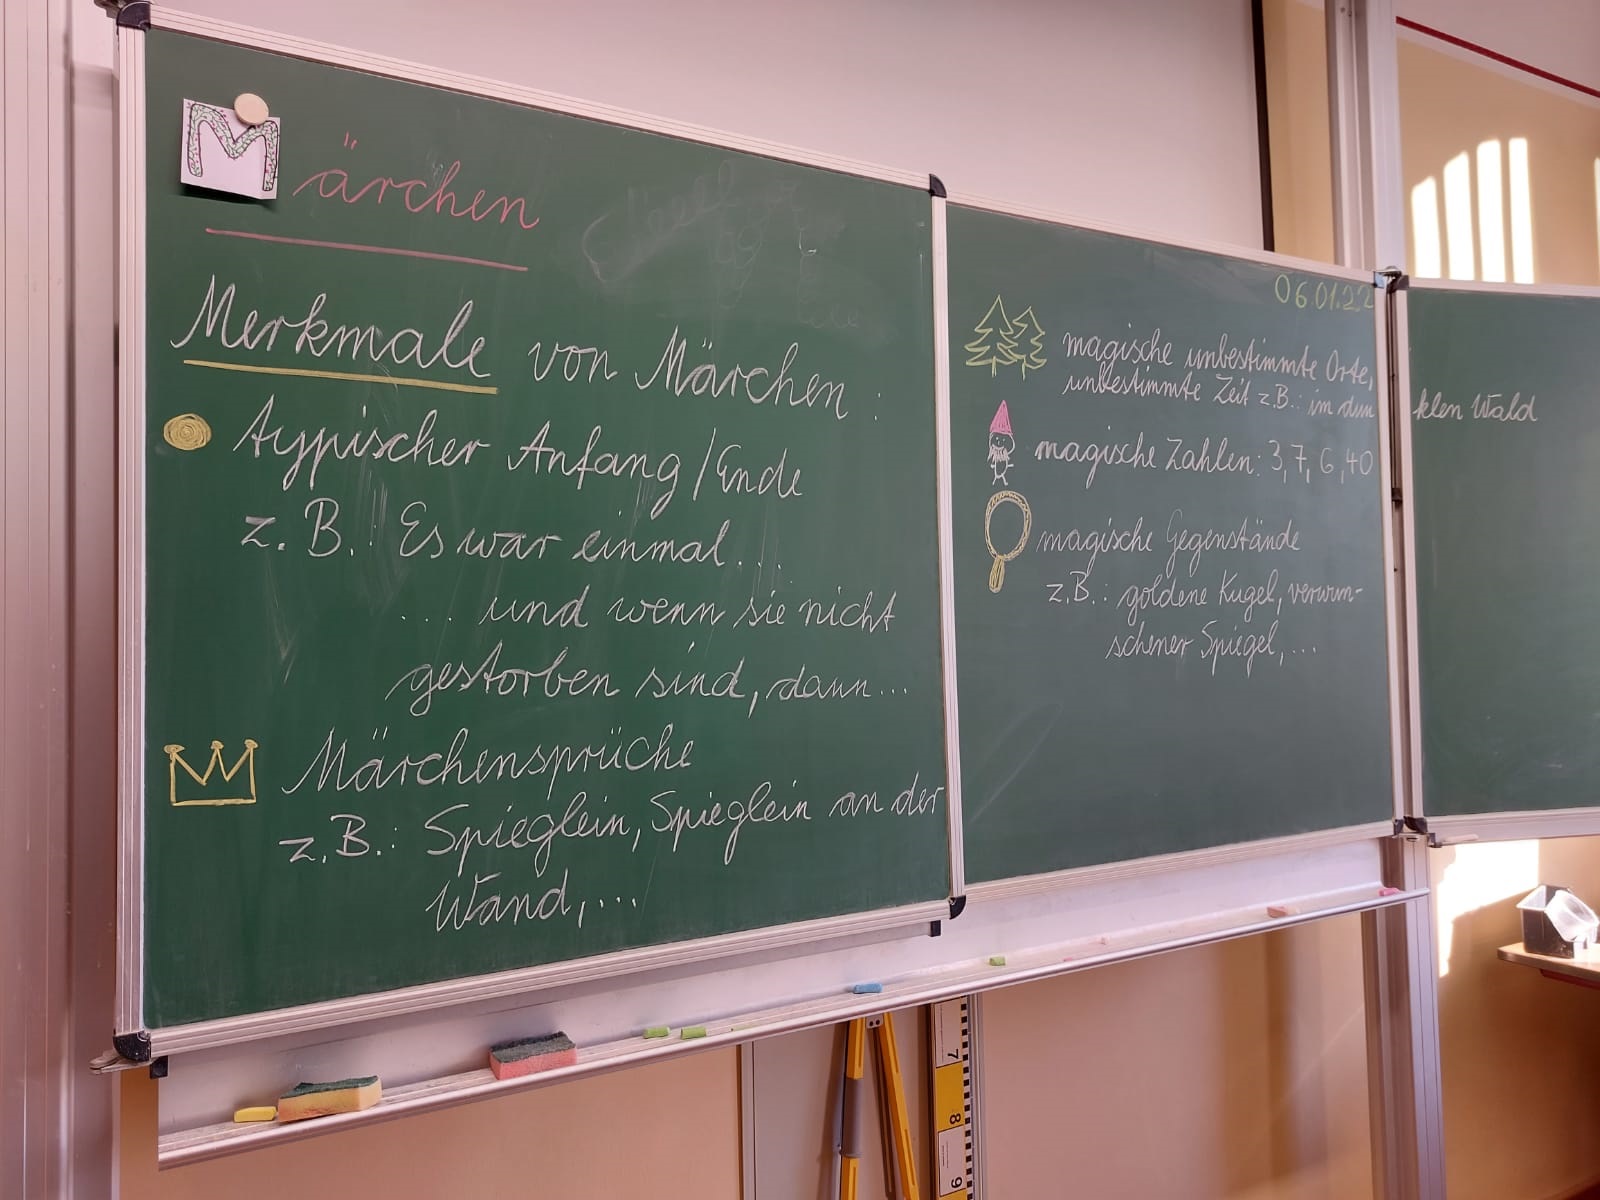 Märchen
Merkmale von Märchen:
typischer Anfang/Ende
z.B.: Es war einmal...
... und wenn sie nicht
gestorben sind, dann...
Märchensprüche
z.B.: Spieglein, Spieglein an der
Wand,...
06.01.22
magische unbestimmte Orte,
unbestimmte Zeit z.B.: im dunklen Wald
magische Zahlen: 3, 7, 6, 40
magische Gegenstände
z.B.: goldene Kugel, verwun-
schener Spiegel,...
7
8
9